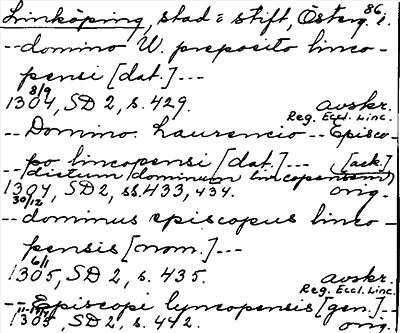 Linköping, stad o stift, Österg. l. 86.
--domino W. preposito linco-
pensi [dat.]---
8/9
1304, SD 2, s. 429. avskr.
Reg. Eccl. Linc.
--Domino Laurencio--Episco-
po lincopensi [dat.]---
--/dictum dominum lincopensem/ [ack.]
1304, SD 2, ss. 433, 434. orig.
30/12
--dominus episcopus linco-
pensis [nom.]---
6/1
1305, SD 2, s. 435. avskr.
Reg. Eccl. Linc.
--Episcopi lyncopensis [gen.]--
1305, SD 2, s. 442. orig.